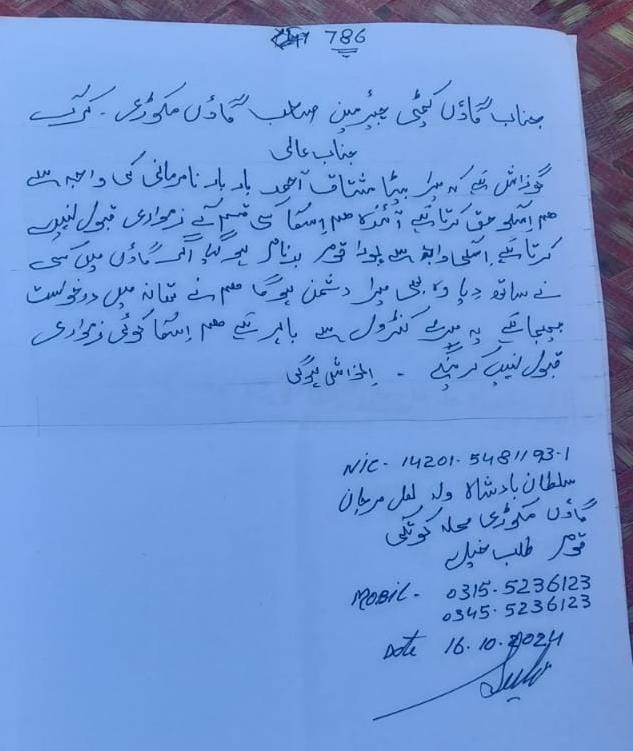 786
جناب گاؤں کمیٹی چیئرمین صاحب گاؤں مکوڑی - کرک
جناب عالی
گذارش ہے کہ میرا بیٹا مشتاق احمد بار بار نافرمانی کی واجہ سے
ہم اسکو عق کرتا ہے آئندہ ہم اسکا کسی قسم کے زمواری قبول نہیں
کرتا ہے اسکی وجہ سے پورا قوم بدنام ہو گیا اگر گاؤں میں کسی
نے ساتھ دیا وہ بھی میرا دشمن ہوگا ہم نے تھانہ میں درخواست
بھیجا ہے یہ میرے کنٹرول سے باہر ہے ہم اسکا کوئی زمواری
قبول نہیں کرینگے - ہوگی
NIC - 14201-5481193-1
سلطان بادشاہ ولد لعل مرجان
گاؤں مکوڑی محلہ کوٹکی
قوم طلب خیل
MOBIL - 0315-5236123
0345-5236123
Date 16.10.2024